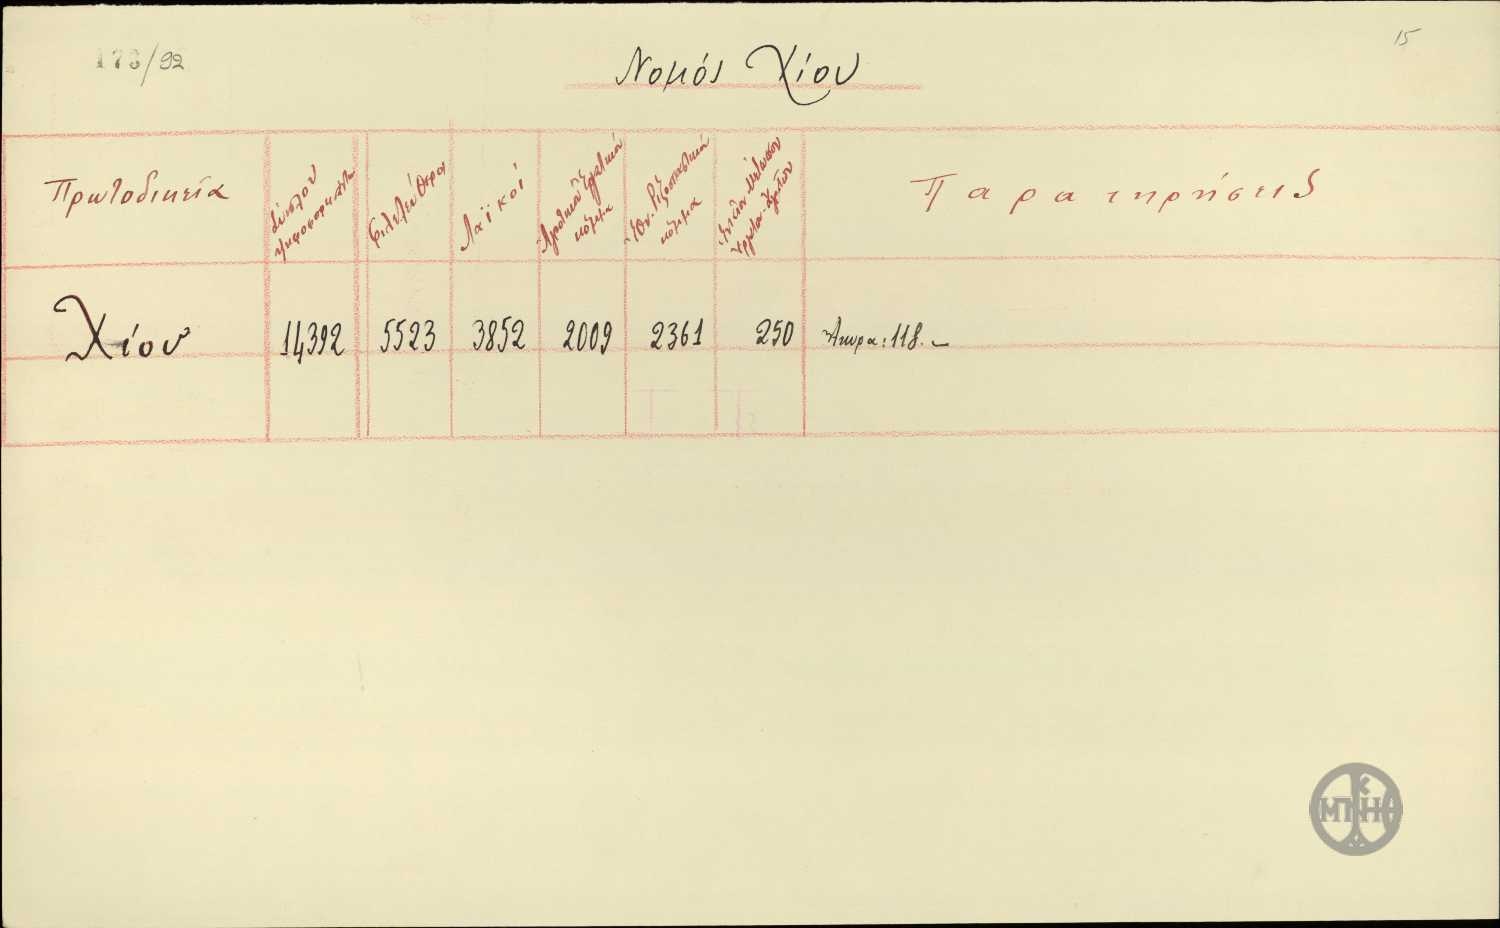 173/92
15
Νομός Χίου
Πρωτοδικεία
Σύνολον
ψηφοφορησάντων
Φιλελεύθεροι
Λαϊκοί
Ἀγροτικὸν Ἐργατικόν
κόμμα
Ἐθν. Ριζοσπαστικόν
κόμμα
Ἑνιαῖον Μέτωπον
Ἐργατῶν-Ἀγροτῶν
Παρατηρήσεις
Χίου 14392 5523 3852 2009 2361 250 Ἄκυρα: 118. –
ΜΠΚΗ